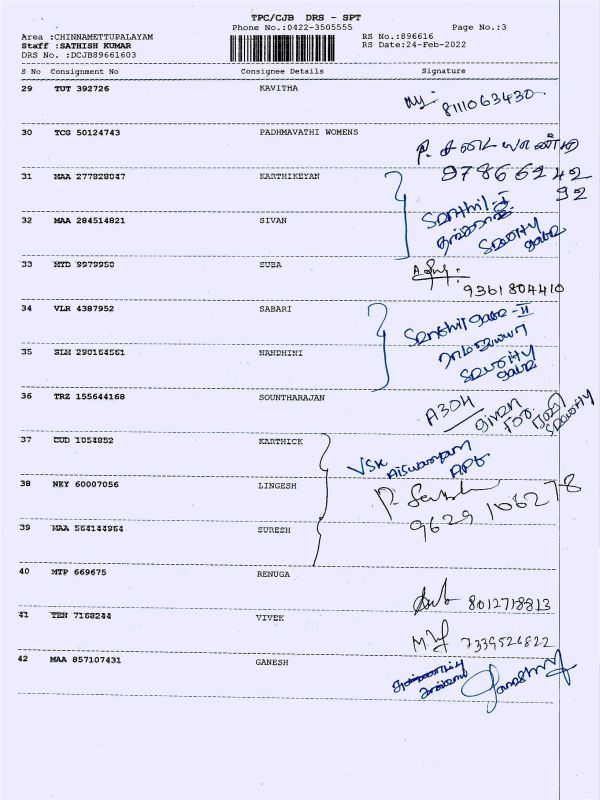 TPC/CJB DRS - SPT
Phone No.:0422-3505555 Page No.:3
Area :CHINNAMETTUPALAYAM RS No.:896616
Staff :SATHISH KUMAR RS Date:24-Feb-2022
DRS No. :DCJB89661603
S No Consignment No Consignee Details Signature
29 TUT 392726 KAVITHA
8111063430
30 TCG 50124743 PADHMAVATHI WOMENS
P.
31 MAA 277828047 KARTHIKEYAN 97866242
92
Senthil - I
32 MAA 284514821 SIVAN
Security
33 HYD 9979950 SUBA
9361804410
34 VLR 4387952 SABARI
Senthil - II
35 SLM 290164561 NANDHINI
Security
36 TRZ 155644168 SOUNTHARAJAN A304
given
For
Security
37 CUD 1054852 KARTHICK
VSK
Apt
38 NEY 60007056 LINGESH
9629106278
39 MAA 564144964 SURESH
40 MTP 669675 RENUGA
8012718813
41 TEN 7168244 VIVEK
7339526822
42 MAA 857107431 GANESH